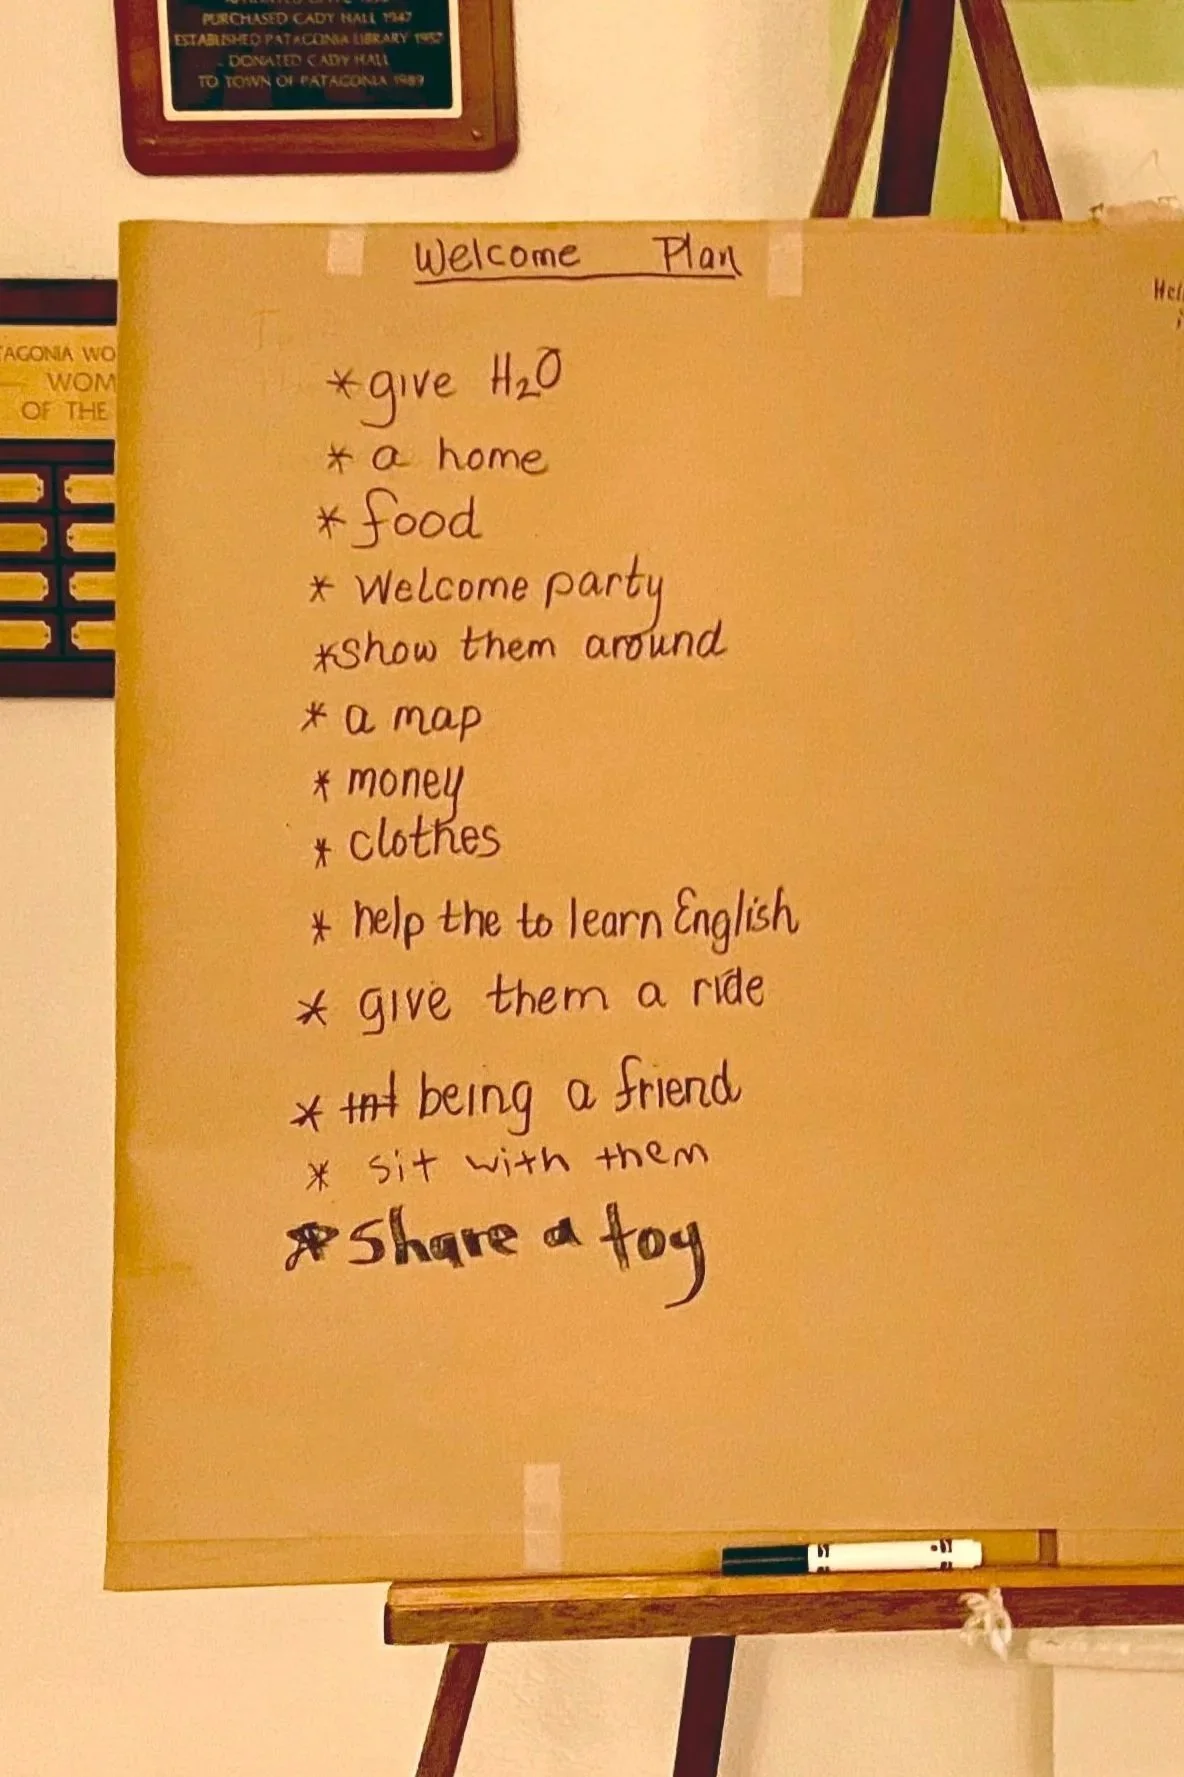 PURCHASED CADY HALL 1947
ESTABLISHED PATAGONIA LIBRARY 1957
DONATED CADY HALL
TO TOWN OF PATAGONIA 1989
AGONIA WO
WOM
OF THE
Welcome Plan
* give H₂O
* a home
* food
* Welcome party
* show them around
* a map
* money
* clothes
* help the to learn English
* give them a ride
* being a friend
* sit with them
* Share a toy
Hel